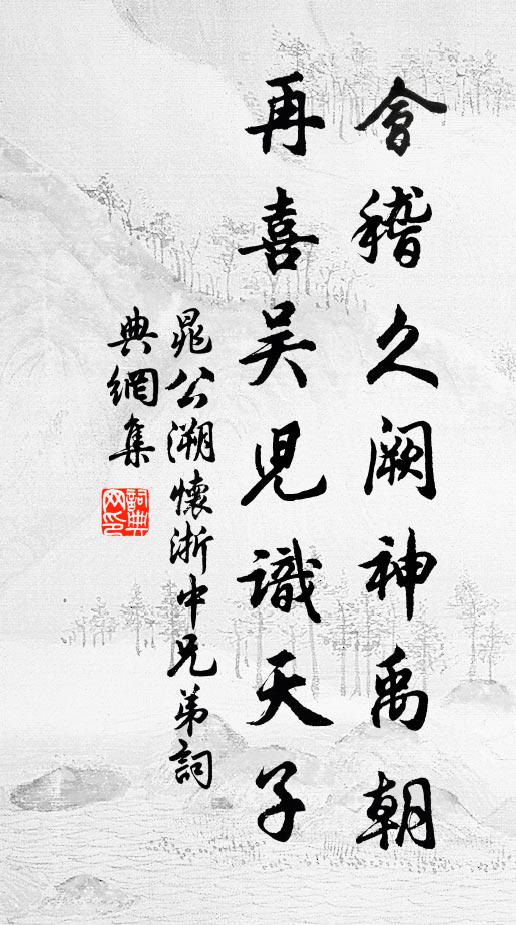 會稽久闕神禹朝
再喜吴兒識天子
晁公溯懷浙中兄弟詞
典網集
詞典網印